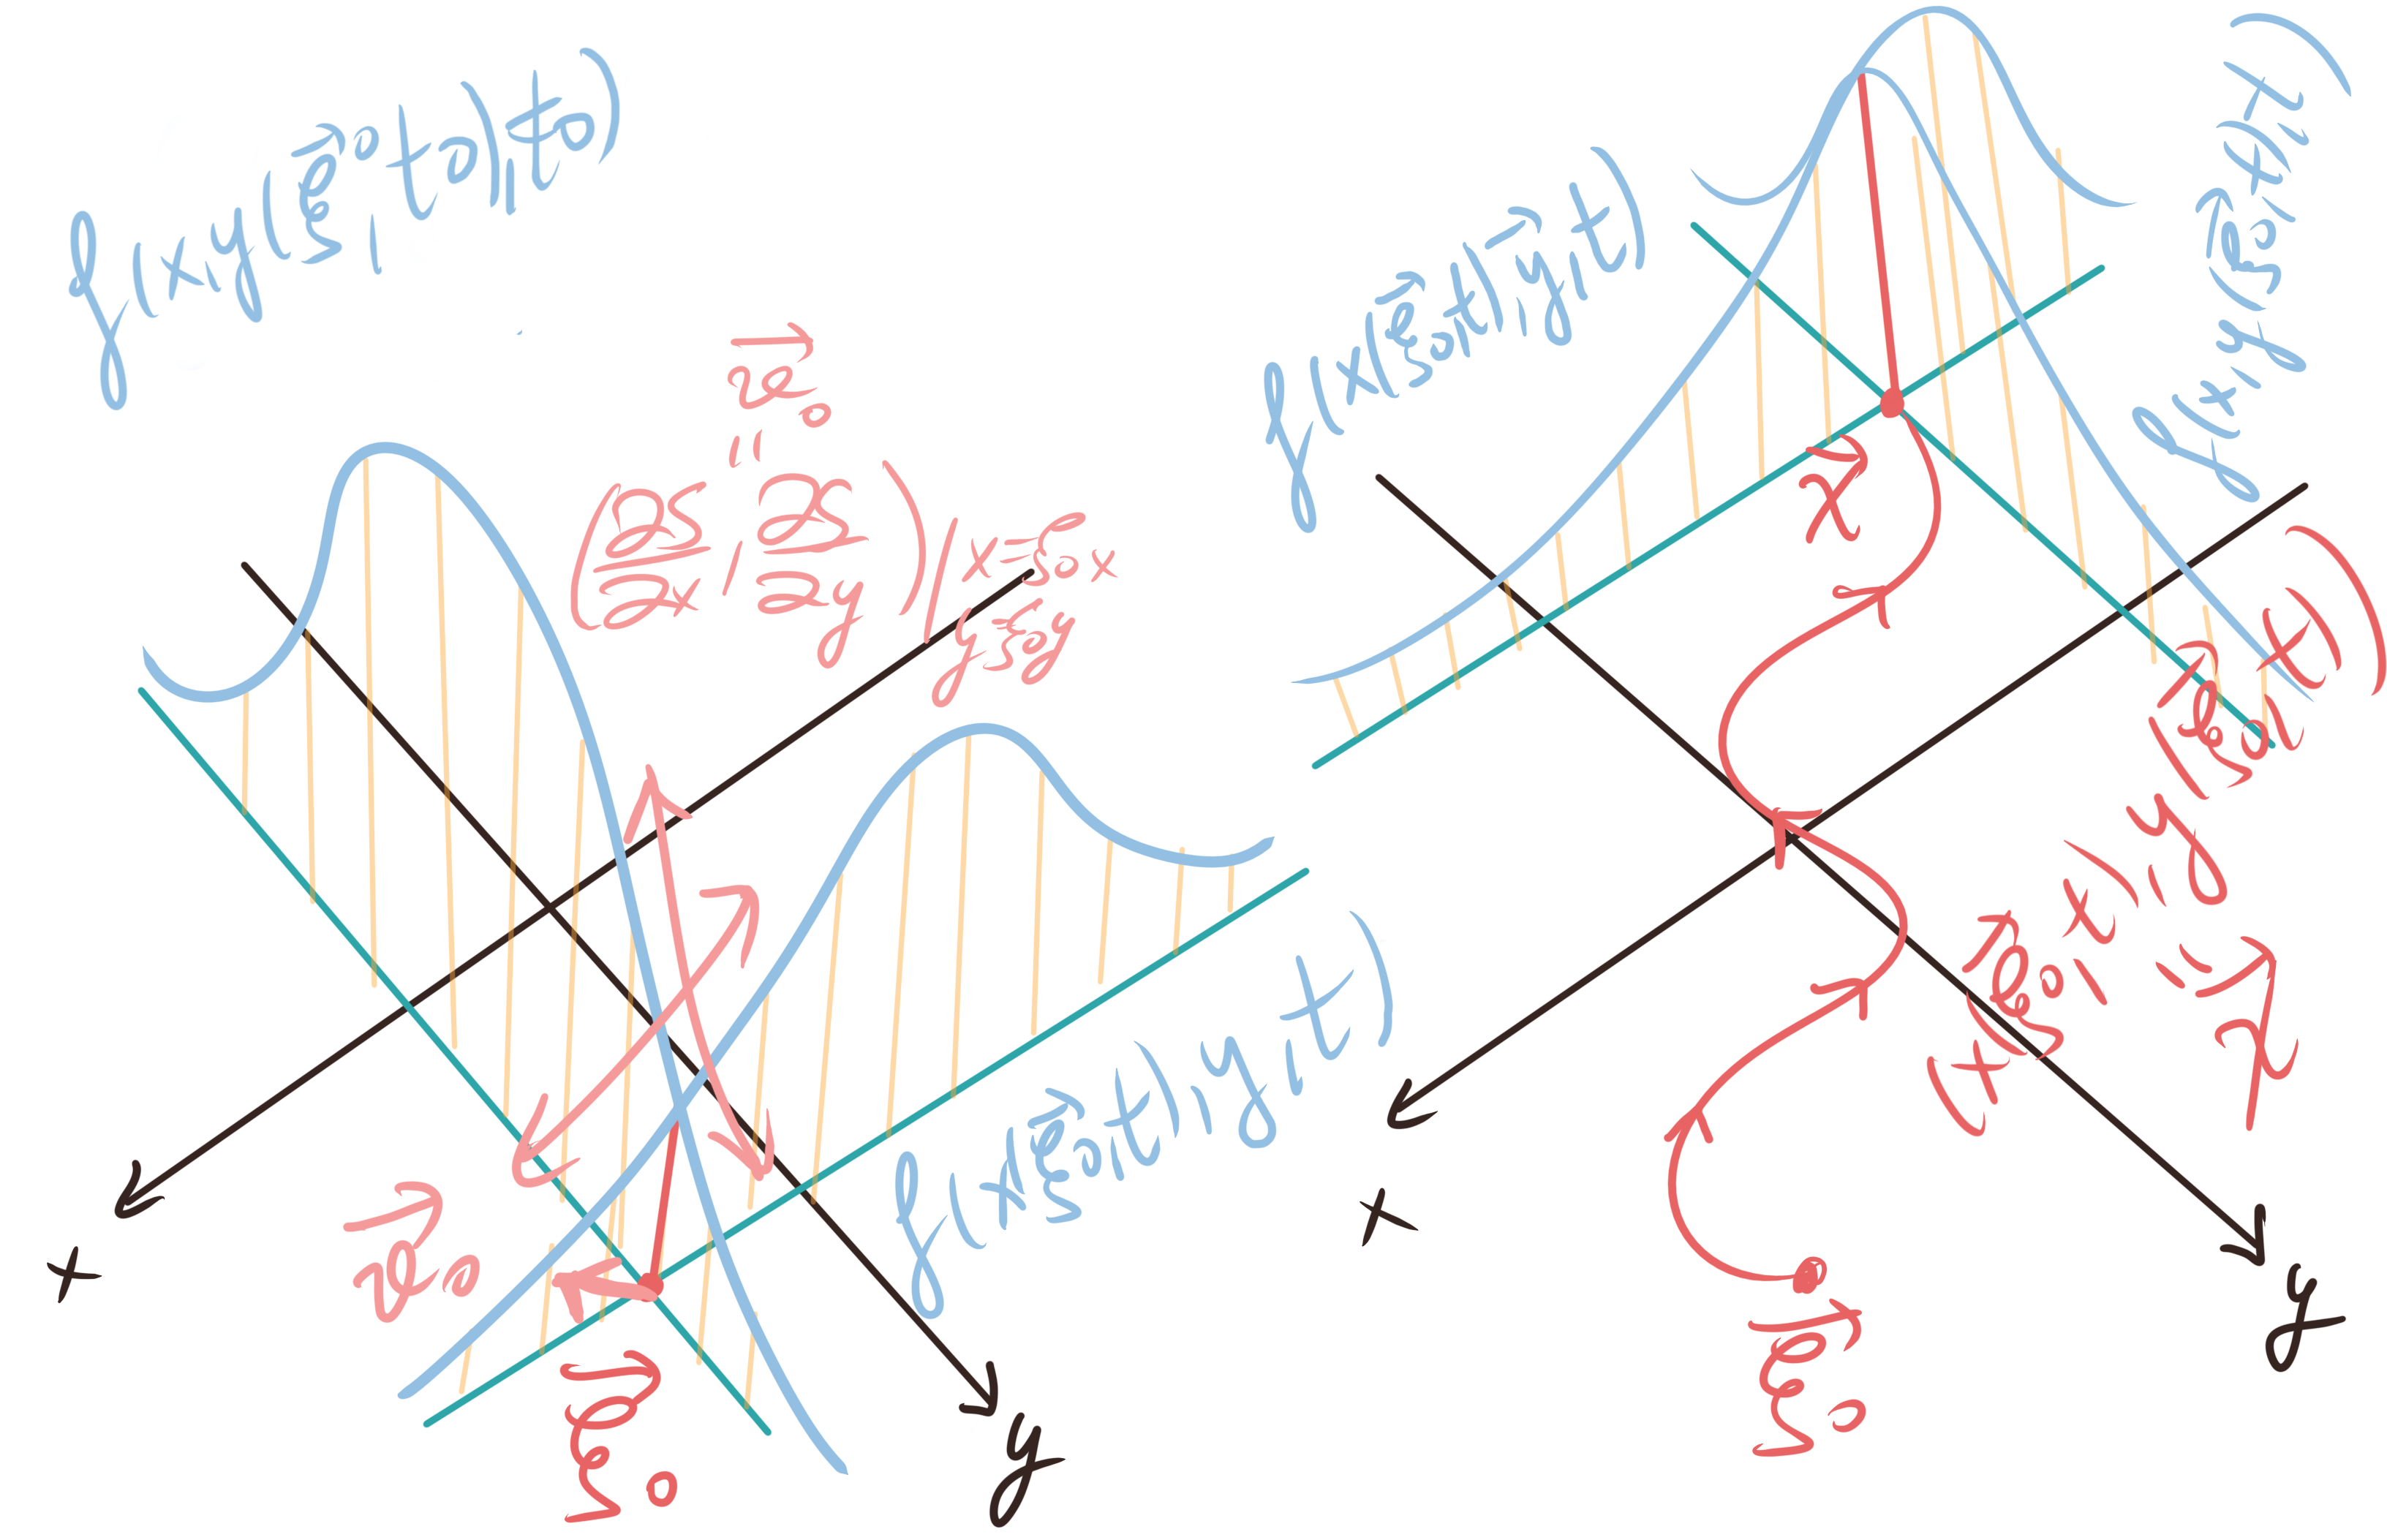 f(x,y(ξ⃗₀,t₀),t₀)
v⃗₀
"
(∂S/∂x, ∂S/∂y)|x=ξ₀x
y=ξ₀y
f(x(ξ⃗₀,t),y,t)
v⃗₀
ξ⃗₀
x
y
f(x(ξ⃗₀,t),y⃗,t)
f(x,y(ξ⃗₀,t),t)
x⃗
(x(ξ⃗₀,t),y(ξ⃗₀,t))
x
y
ξ⃗₀